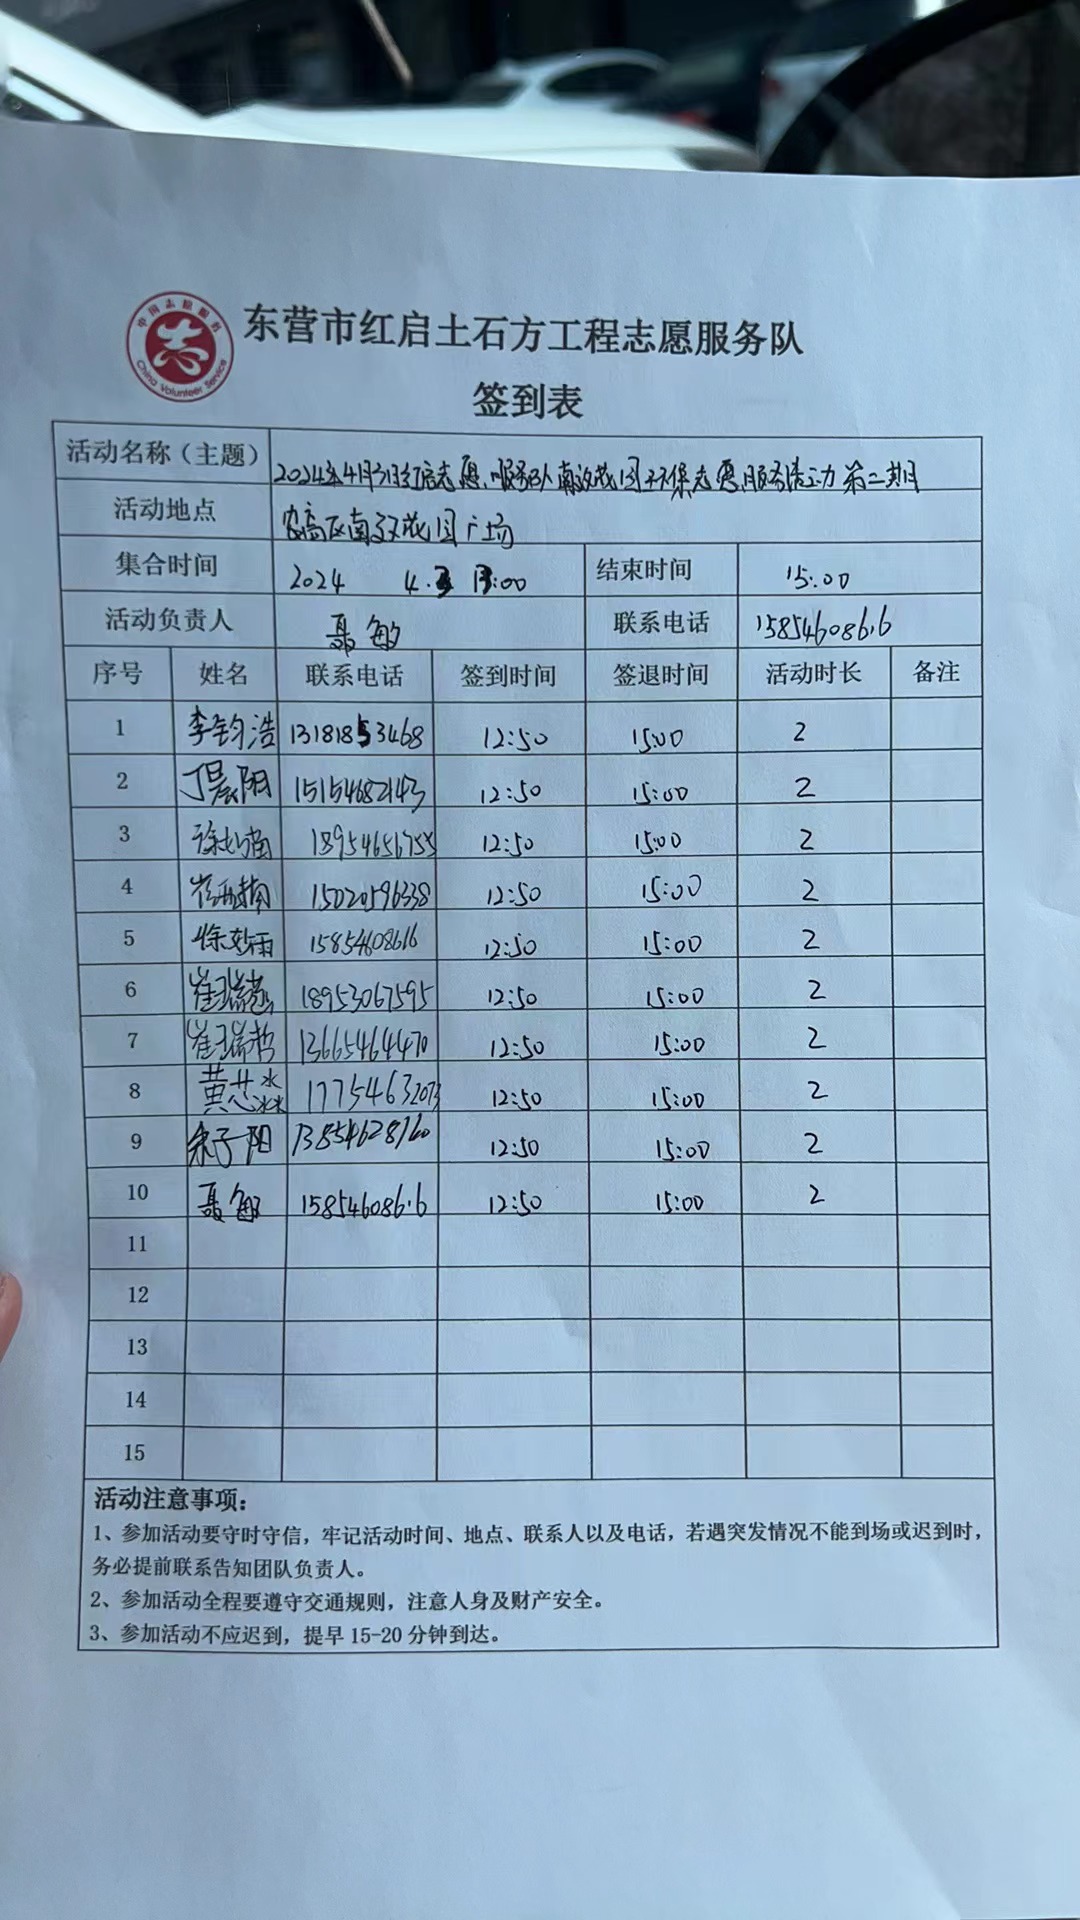 中国志愿服务
China Volunteer Service
东营市红启土石方工程志愿服务队
签到表
活动名称（主题） 2024年4月3日红启志愿服务队南汶花园环保志愿服务活动第二期
活动地点 农高区南汶花园广场
集合时间 2024 4.3 13:00 结束时间 15:00
活动负责人 聂敏 联系电话 15854608616
序号 姓名 联系电话 签到时间 签退时间 活动时长 备注
1 李钧浩 13181853468 12:50 15:00 2
2 丁晨阳 15154682143 12:50 15:00 2
3 徐 18954651755 12:50 15:00 2
4 崔 楠 15020596338 12:50 15:00 2
5 徐 雨 15854608616 12:50 15:00 2
6 崔瑞 18953067595 12:50 15:00 2
7 崔瑞哲 13665464470 12:50 15:00 2
8 黄芯淼 17754632073 12:50 15:00 2
9 子阳 13854628760 12:50 15:00 2
10 聂敏 15854608616 12:50 15:00 2
11
12
13
14
15
活动注意事项：
1、参加活动要守时守信，牢记活动时间、地点、联系人以及电话，若遇突发情况不能到场或迟到时，
务必提前联系告知团队负责人。
2、参加活动全程要遵守交通规则，注意人身及财产安全。
3、参加活动不应迟到，提早 15-20 分钟到达。